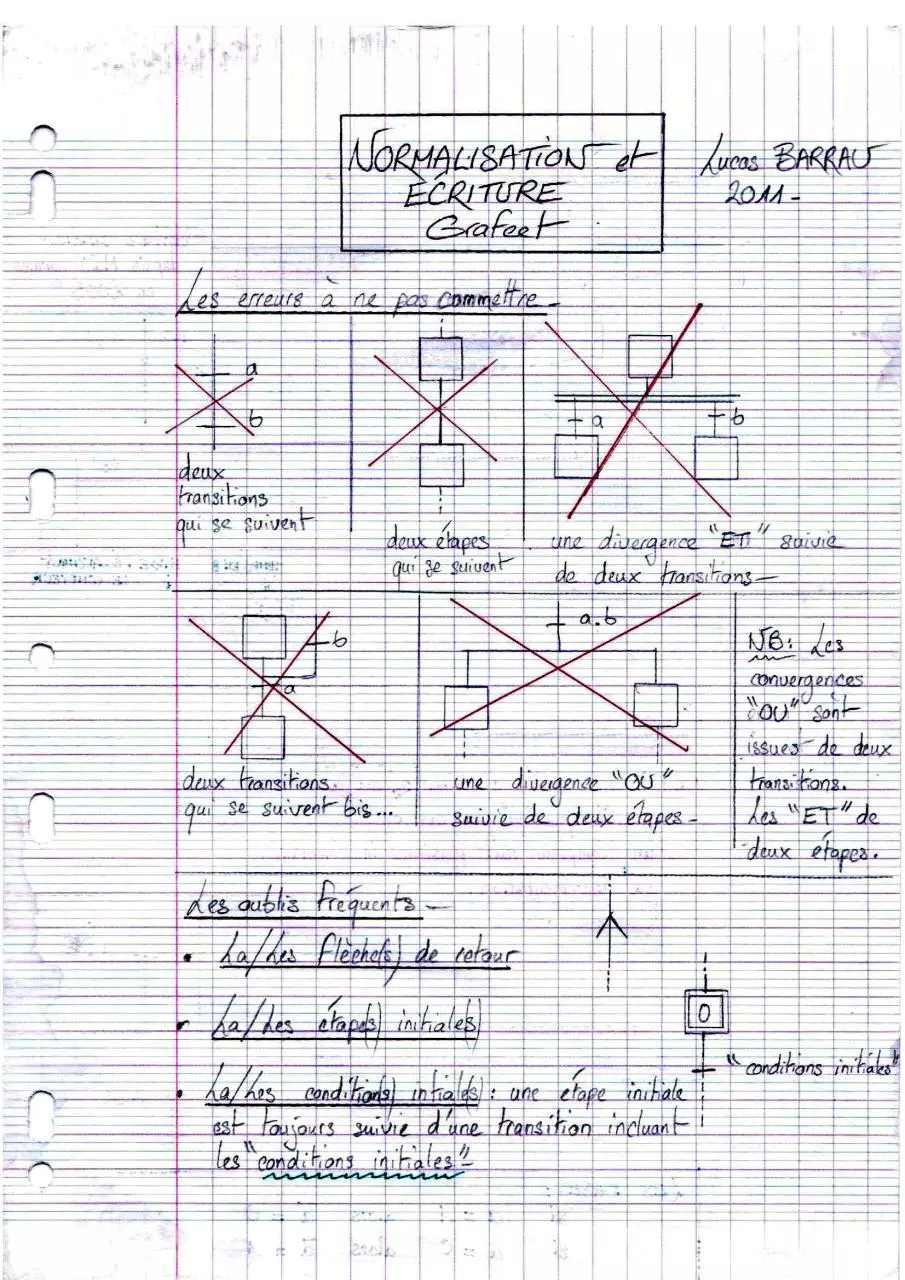 NORMALISATION et
ÉCRITURE
Grafcet
Lucas BARRAU
2011-
Les erreurs à ne pas commettre-
a
b
deux
transitions
qui se suivent
deux étapes
qui se suivent
a
b
une divergence "ET" suivie
de deux transitions-
b
a
deux transitions
qui se suivent bis...
a.b
une divergence "OU"
suivie de deux étapes-
NB: Les
convergences
"OU" sont
issues de deux
transitions.
Les "ET" de
deux étapes.
Les oublis fréquents-
• La/Les flèche(s) de retour
• La/Les étape(s) initiale(s)
0
"conditions initiales"
• La/Les condition(s) intiale(s) : une étape initiale
est toujours suivie d'une transition incluant
les "conditions initiales"-